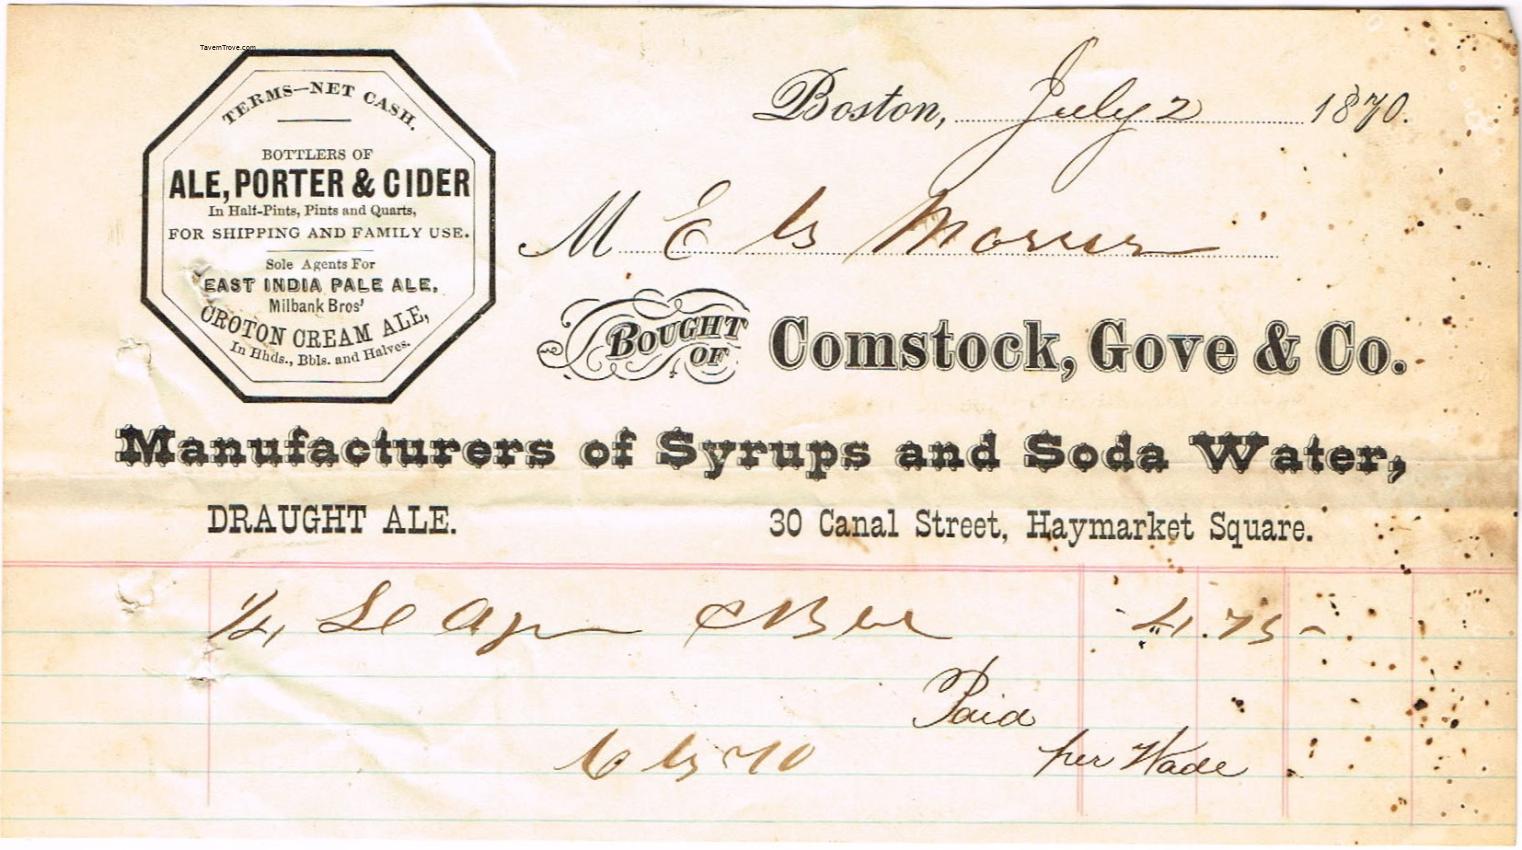 TavernTrove.com
TERMS—NET CASH.
BOTTLERS OF
ALE, PORTER & CIDER
In Half-Pints, Pints and Quarts,
FOR SHIPPING AND FAMILY USE.
Sole Agents For
EAST INDIA PALE ALE,
Milbank Bros'
CROTON CREAM ALE,
In Hhds., Bbls. and Halves.
Boston, July 2 1870.
M E
BOUGHT OF Comstock, Gove & Co.
Manufacturers of Syrups and Soda Water,
DRAUGHT ALE. 30 Canal Street, Haymarket Square.
4.75
Paid
per Wade